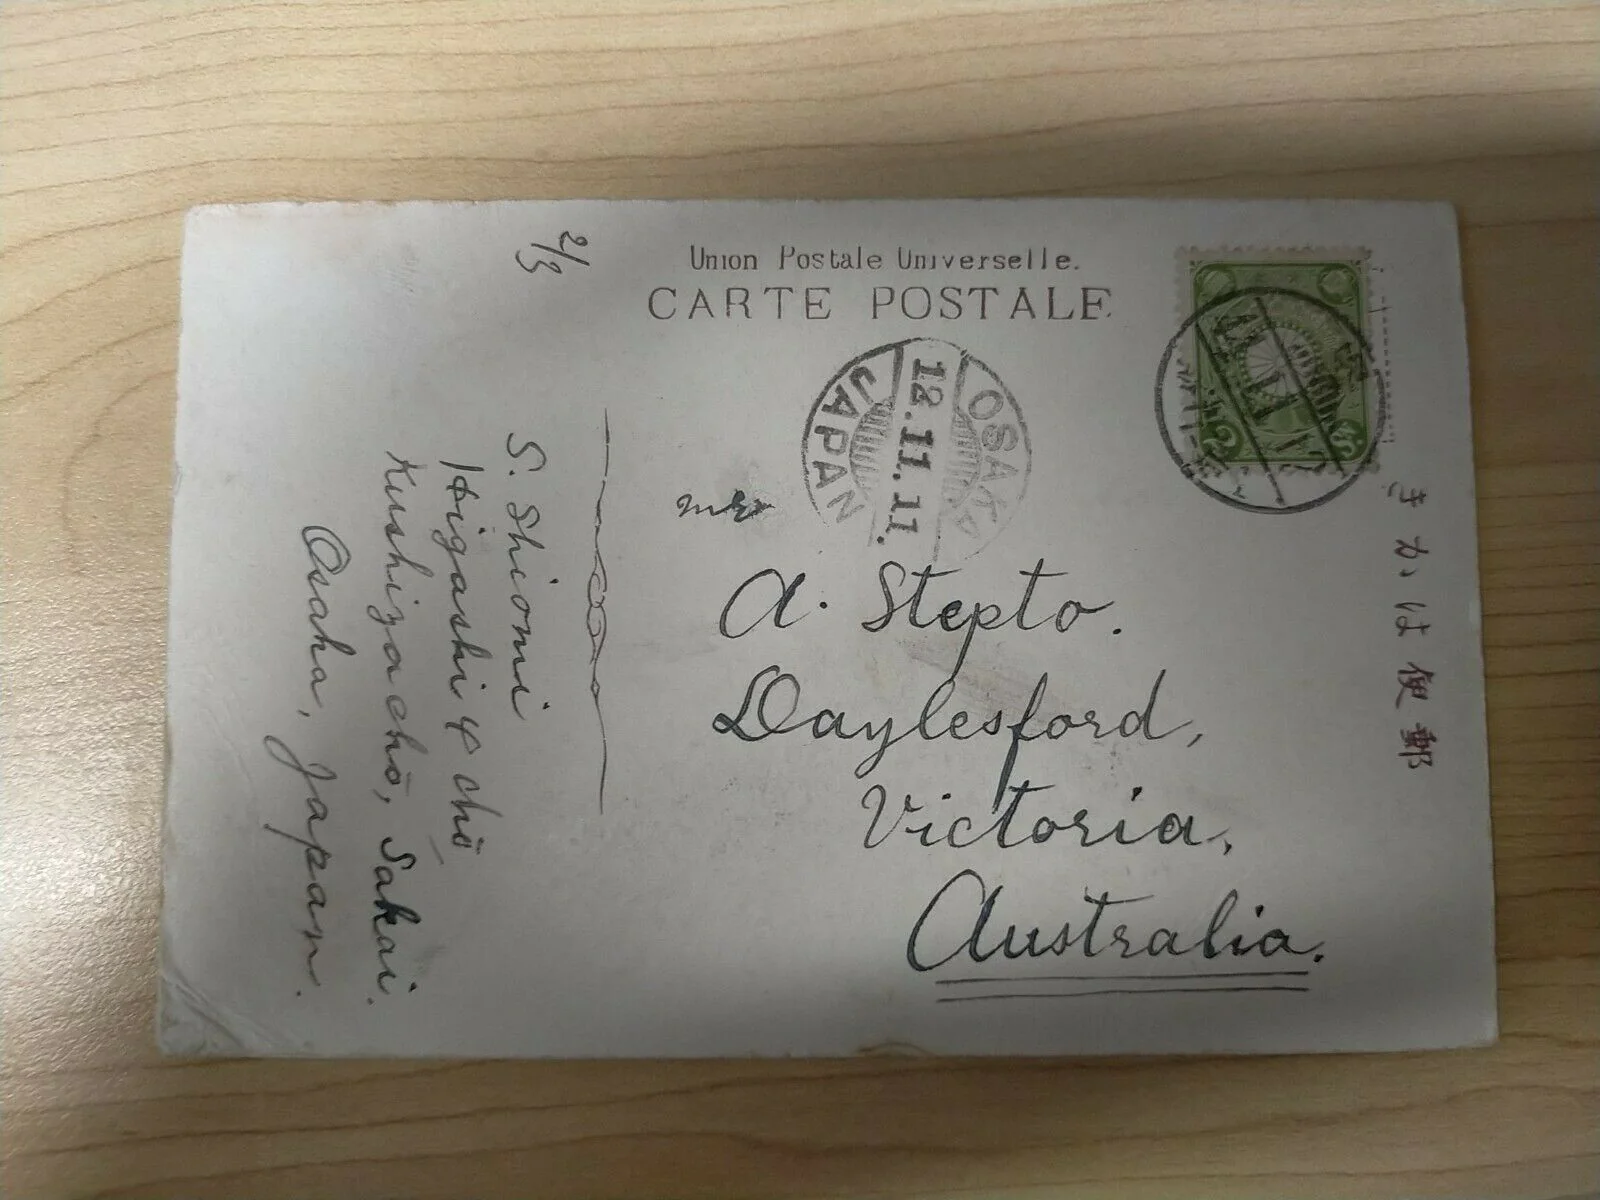 Union Postale Universelle.
CARTE POSTALE
きかゝは便郵
OSAKA
12.11.11.
JAPAN
2/3
Mr
A. Stepto.
Daylesford,
Victoria,
Australia.
S. Shiomi
Higashi 4 chō
Kushiyachō, Sakai.
Osaka, Japan.